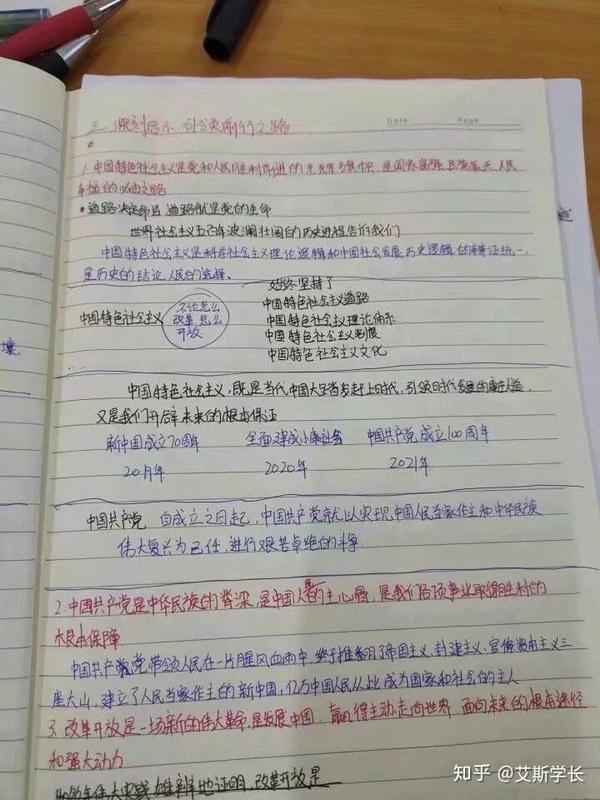 三、深刻启示、引领前行之路
Date Page
1.中国特色社会主义是党和人民胜利前进的光辉旗帜,是国家富强民族振兴人民
幸福的必由之路
•道路决定命运 道路就是党的生命
世界社会主义五百年波澜壮阔的历史进程告诉我们
中国特色社会主义是科学社会主义理论逻辑和中国社会发展历史逻辑的辩证统一,
是历史的结论人民的选择.
始终坚持了
中国特色社会主义道路
中国特色社会主义 不论怎么改革,怎么开放 中国特色社会主义理论体系
中国特色社会主义制度
中国特色社会主义文化
中国特色社会主义,既是当代中国大踏步赶上时代,引领时代发展的康庄大道
又是我们开辟未来的根本保证
新中国成立70周年 全面建成小康社会 中国共产党成立100周年
2019年 2020年 2021年
中国共产党 自成立之日起,中国共产党就以实现中国人民当家作主和中华民族
伟大复兴为己任,进行艰苦卓绝的斗争.
2.中国共产党是中华民族的脊梁,是中国人民的主心骨,是我们各项事业取得胜利的
根本保障
中国共产党带领人民在一片腥风血雨中,终于推翻了帝国主义,封建主义,官僚资本主义三
座大山,建立了人民当家作主的新中国,亿万中国人民从此成为国家和社会的主人
3.改革开放是一场新的伟大革命,是发展中国 赢得主动走向世界 面向未来的根本途径
和强大动力
年伟大实践雄辩地证明,改革开放是
壤
知乎 @艾斯学长